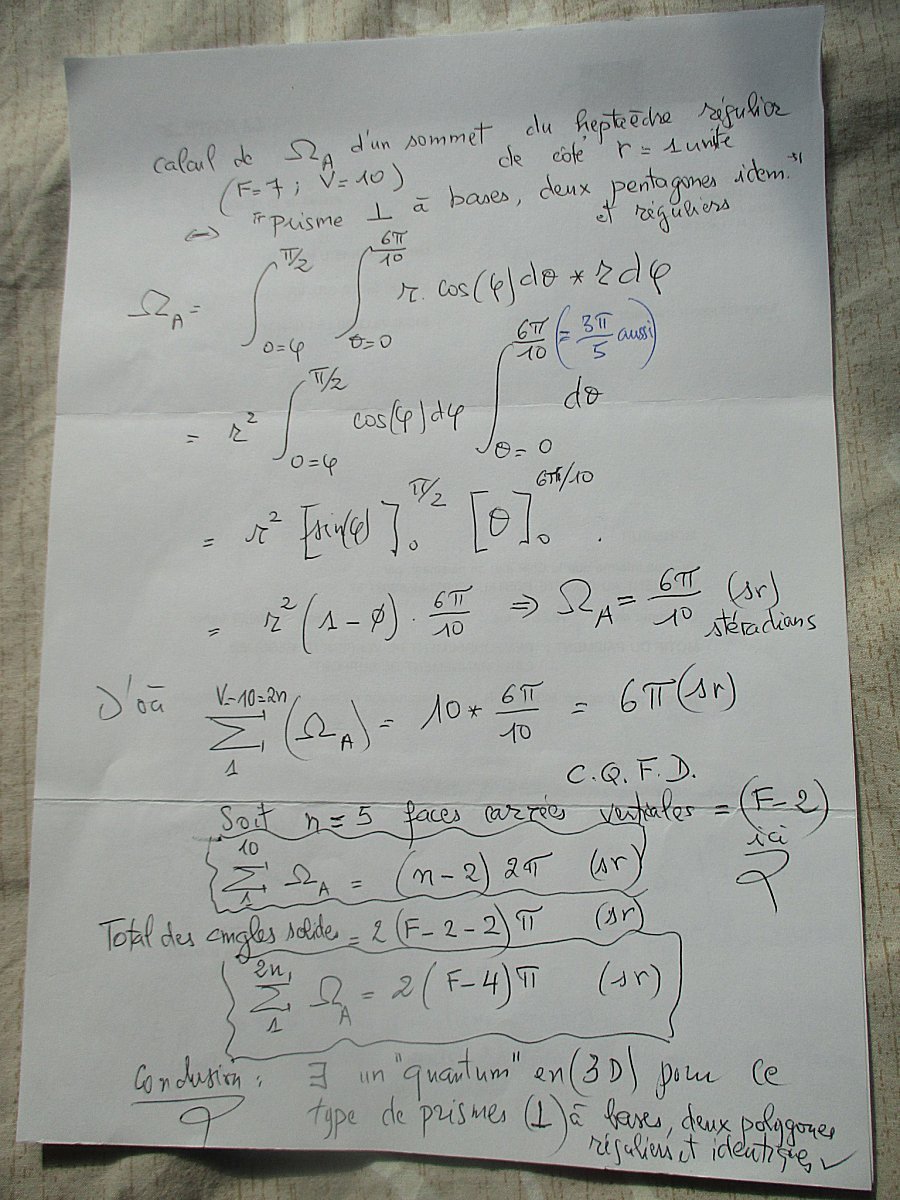 Calcul de Ω_A d'un sommet du heptaèdre régulier
(F=7 ; V=10) de côté r = 1 unité
⇔ prisme ⊥ à bases, deux pentagones idem.
et réguliers
Ω_A = ∫_{0=φ}^{π/2} ∫_{θ=0}^{6π/10} r. cos(φ)dθ * r dφ
= r² ∫_{0=φ}^{π/2} cos(φ)dφ ∫_{θ=0}^{6π/10 (= 3π/5 aussi)} dθ
= r² [sin(φ)]_0^{π/2} [θ]_0^{6π/10} .
= r² (1 - 0) . 6π/10 ⇒ Ω_A = 6π/10 (sr)
stéradians
D'où ∑_1^{V-10=2n} (Ω_A) = 10 * 6π/10 = 6π (sr)
C.Q.F.D.
Soit n = 5 faces carrées verticales = (F-2)
ici
∑_1^{10} Ω_A = (n-2) 2π (sr)
Total des angles solide = 2(F-2-2)π (sr)
∑_1^{2n} Ω_A = 2(F-4)π (sr)
Conclusion : ∃ un "quantum" en (3D) pour ce
type de prismes (⊥) à bases, deux polygones
réguliers et identiques